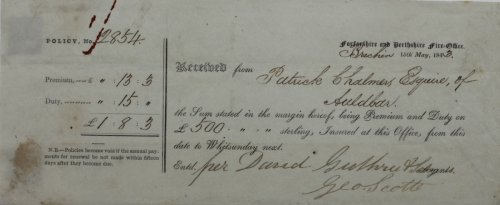 POLICY, No. 12854.
Premium, £ " 13 : 3
Duty, " 15 "
£ 1 : 8 : 3
N.B.—Policies become void if the annual payments for renewal be not made within fifteen days after they become due.
Forfarshire and Perthshire Fire-Office.
Brechin 15th May, 1843.
Received from Patrick Chalmers Esquire, of
Auldbar.
the Sum stated in the margin hereof, being Premium and Duty on
£ 500 " " " sterling, Insured at this Office, from this
date to Whitsunday next.
Entd. per David Guthrie &
Geo Scott